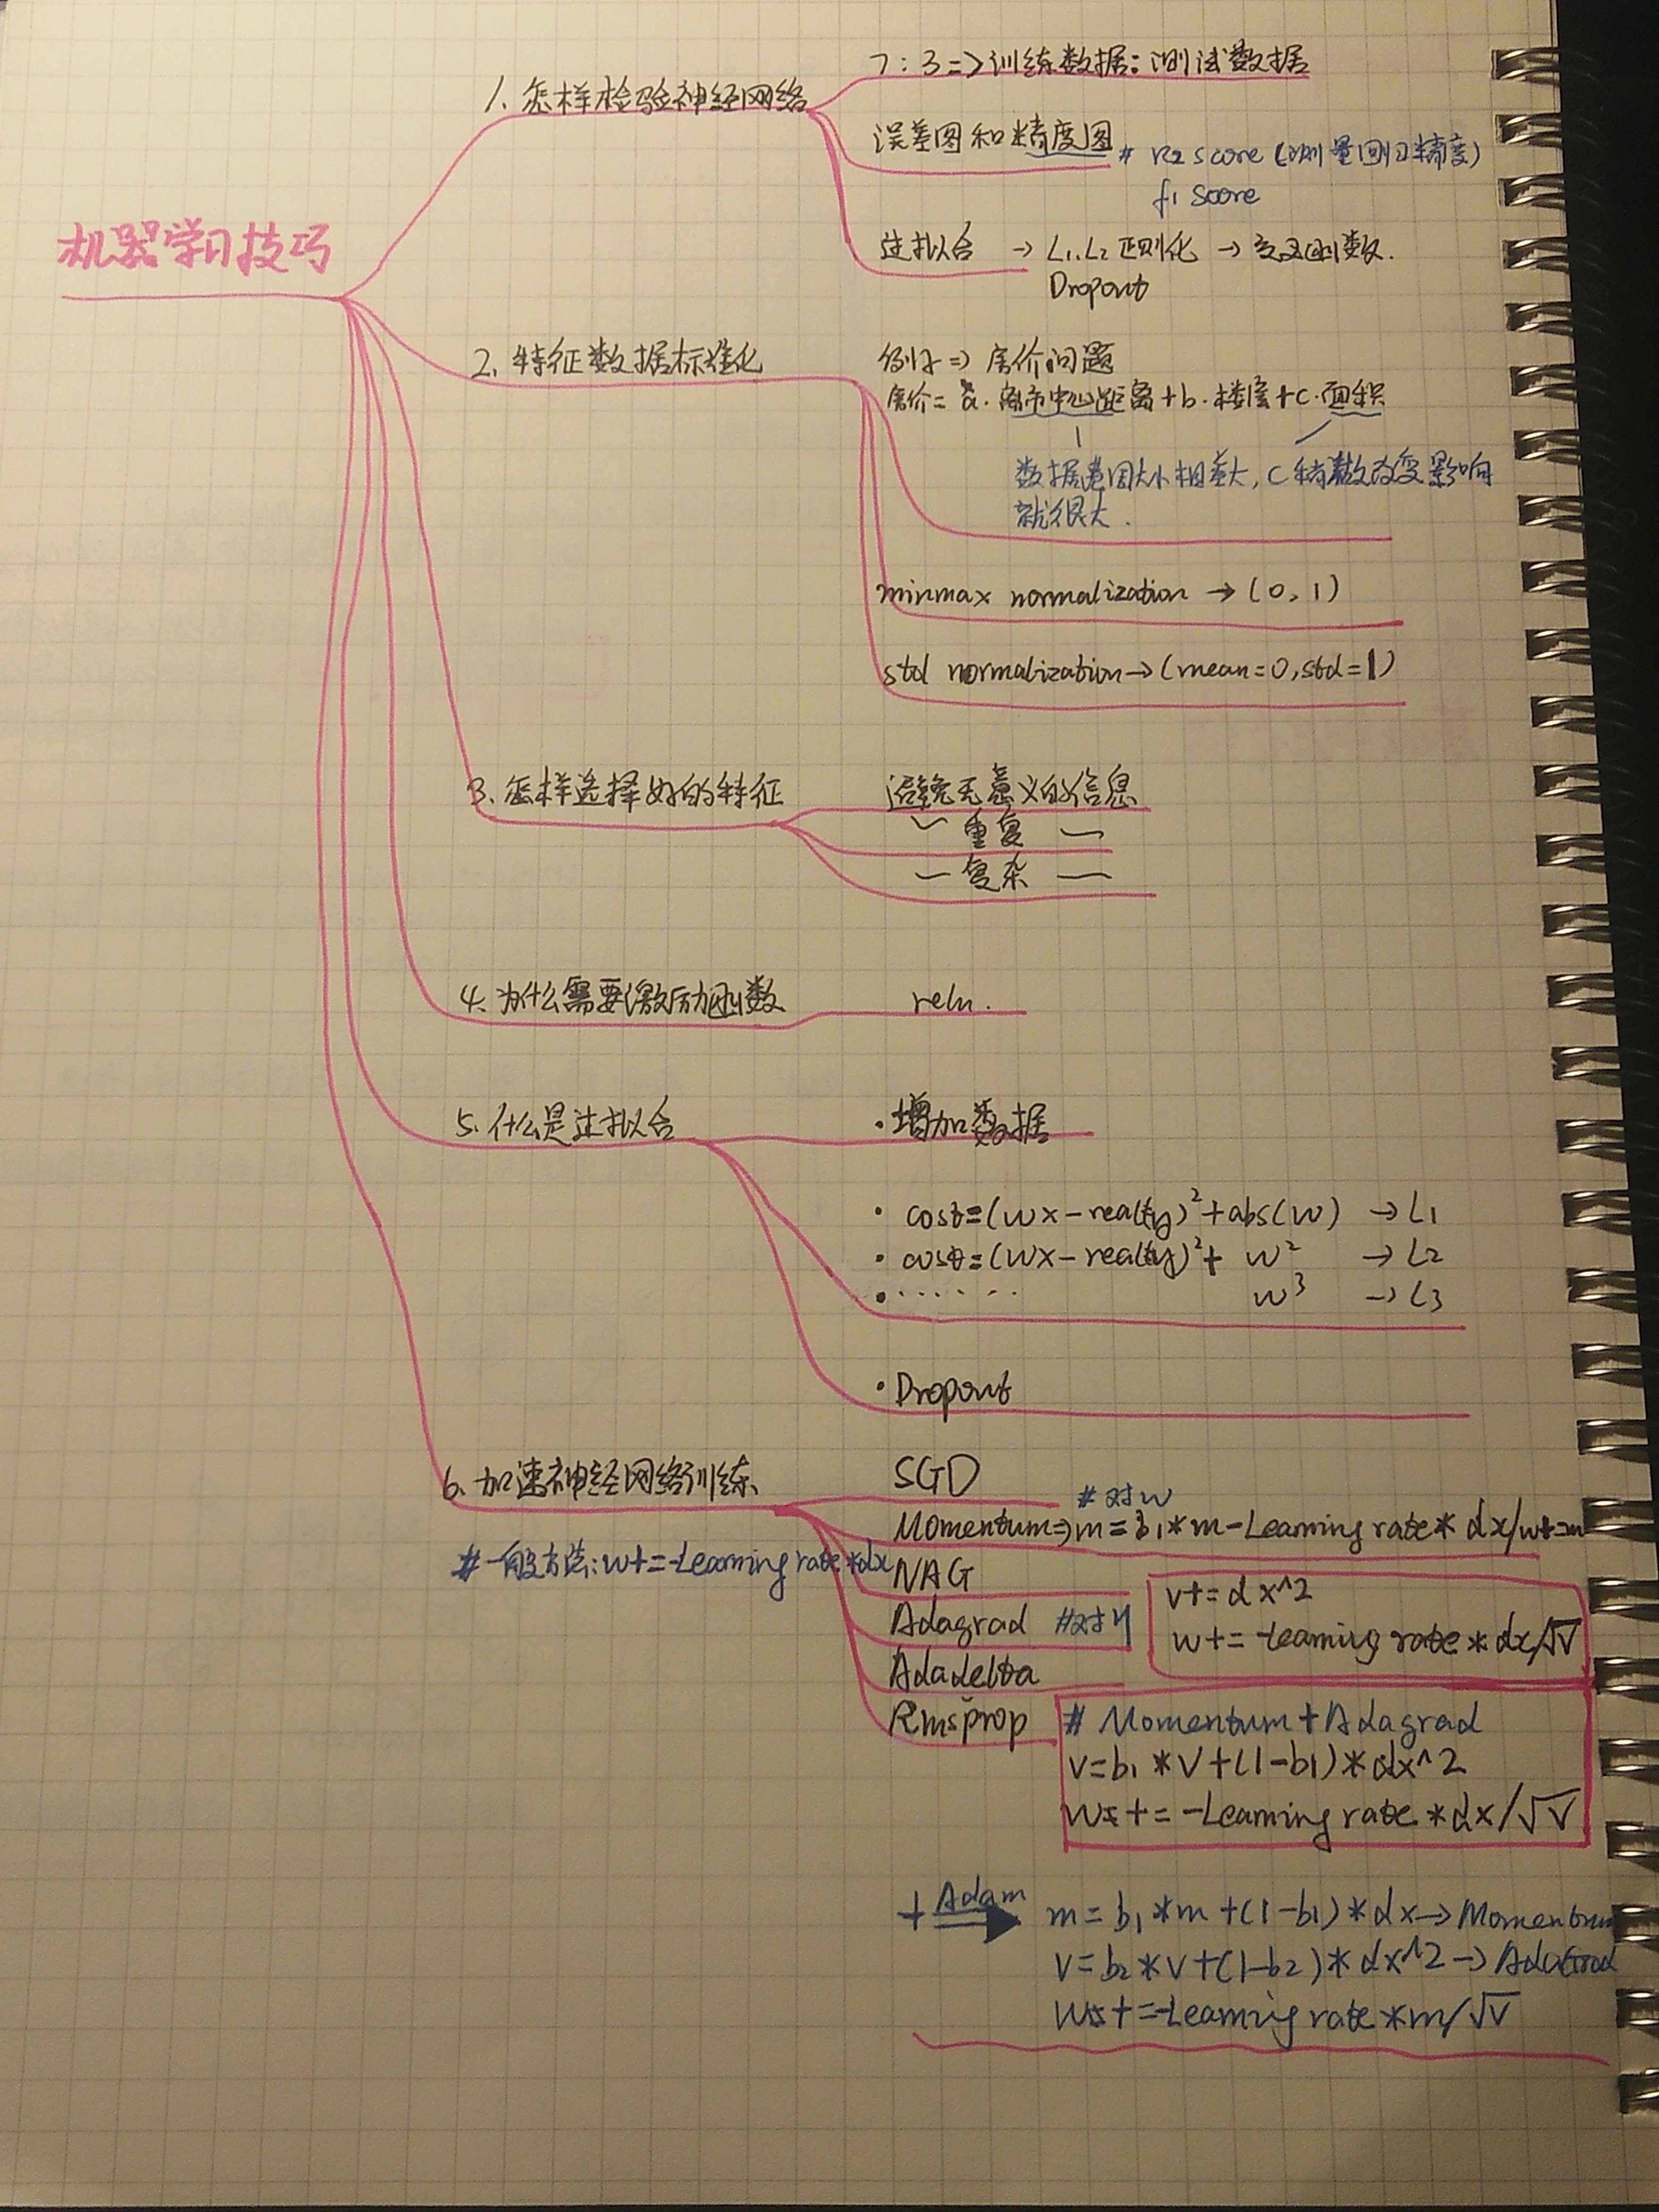 机器学习技巧
1. 怎样检验神经网络
7:3=>训练数据:测试数据
误差图和精度图 # R2 score (测量回归精度)
f1 score
过拟合 → L1.L2 正则化 → 交叉函数.
Dropout
2. 特征数据标准化
例子=> 房价问题
房价= a. 离市中心距离+b.楼层+c.面积
数据范围大小相差大, C稍微改变影响
就很大.
minmax normalization → (0,1)
std normalization→(mean=0,std=1)
3. 怎样选择好的特征
避免无意义的信息
~ 重复 ~
— 复杂 —
4. 为什么需要激励函数
relu.
5. 什么是过拟合
·增加数据
· cost=(wx-realty)²+abs(w) →L1
· cost=(wx-realty)²+ w² →L2
· ······ w³ →L3
·Dropout
6. 加速神经网络训练
# 一般方法:w+=-Learning rate*dx
SGD
# 对w
Momentum=>m=b1*m-Learning rate* dx/w+=m
NAG
Adagrad #对η
v+=dx^2
w+=-Learning rate*dx/√v
Adadelta
Rmsprop
# Momentum+Adagrad
v=b1*v+(1-b1)*dx^2
w+=-Learning rate*dx/√v
+ Adam
m=b1*m+(1-b1)*dx→Momentum
v=b2*v+(1-b2)*dx^2→AdaGrad
w+=-Learning rate*m/√v